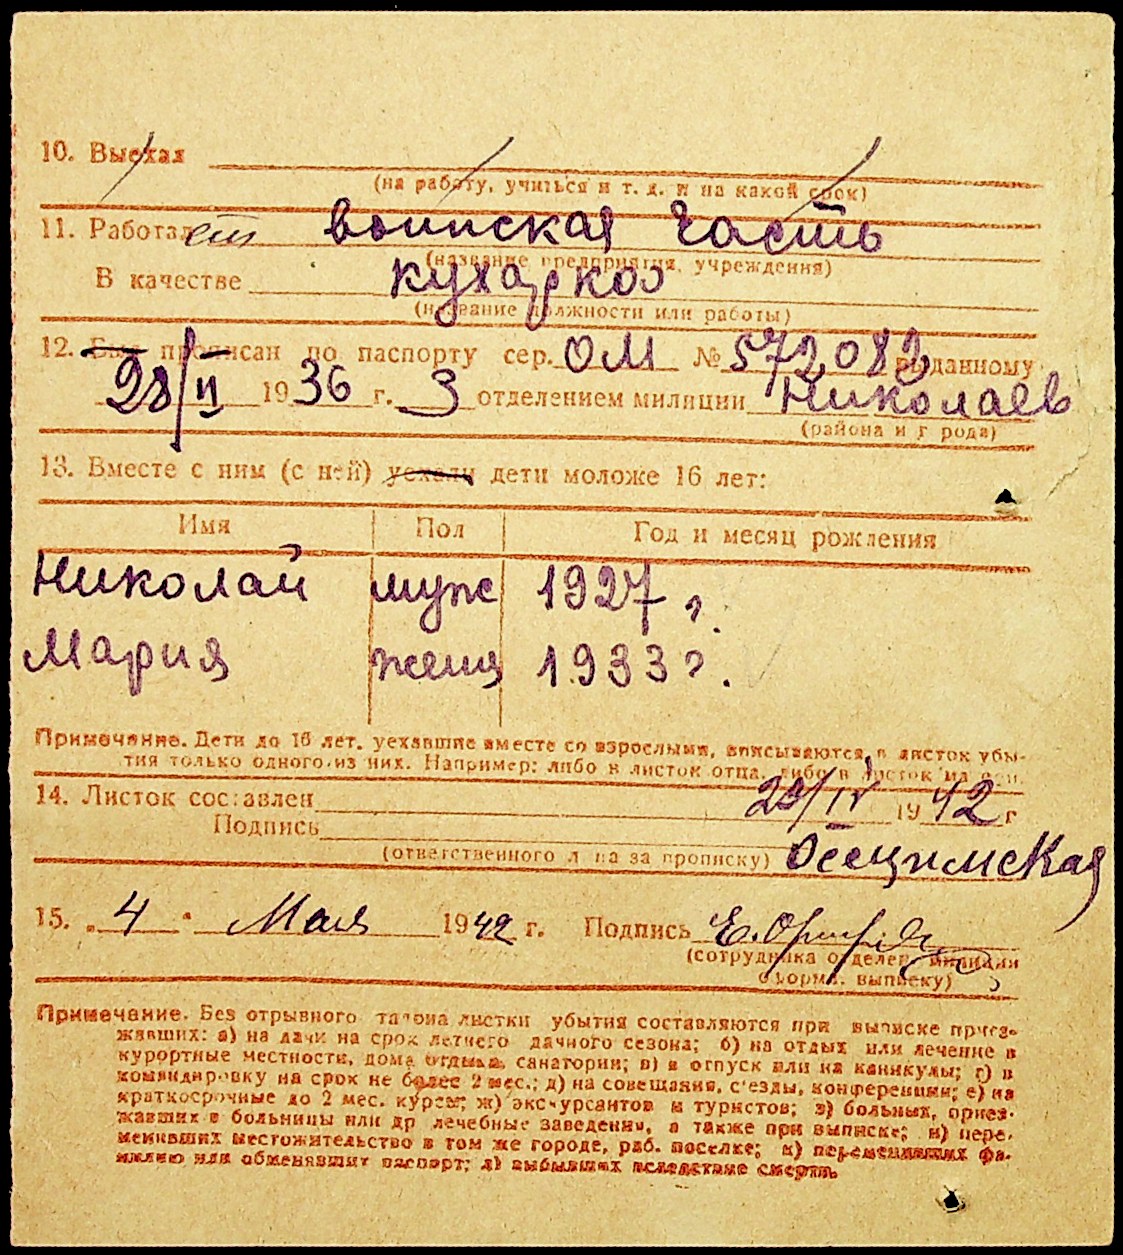 10. Выехал
(на работу, учиться и т. д. и на какой срок)
11. Работает воинская часть
(название предприятия, учреждения)
В качестве кухаркой
(название должности или работы)
12. Был прописан по паспорту сер. ОМ № 572083 выданному
28/II 1936 г. 3 отделением милиции Николаев
(района и города)
13. Вместе с ним (с ней) уехали дети моложе 16 лет:
Имя Пол Год и месяц рождения
Николай муж 1927 г.
Мария женщ 1933 г.
Примечание. Дети до 16 лет, уехавшие вместе со взрослыми, вписываются в листок убы-
тия только одного из них. Например: либо в листок отца, либо в листок матери.
14. Листок составлен 29/IV 1942 г
Подпись
(ответственного лица за прописку) Осецимская
15. „4" Мая 1942 г. Подпись Е.
(сотрудника отделен. милиции
оформ. выписку)
Примечание. Без отрывного талона листки убытия составляются при выписке приез-
жавших: а) на дачи на срок летнего дачного сезона; б) на отдых или лечение в
курортные местности, дома отдыха, санатории; в) в отпуск или на каникулы; г) в
командировку на срок не более 2 мес.; д) на совещания, с'езды, конференции; е) на
краткосрочные до 2 мес. курсы; ж) экскурсантов и туристов; з) больных, приез-
жавших в больницы или др лечебные заведения, а также при выписке; и) пере-
менивших местожительство в том же городе, раб. поселке; к) переменивших фа-
милию или обменявших паспорт; л) выбывших вследствие смерти